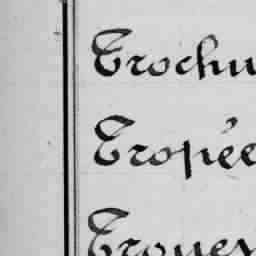 Trochu
Tropée
Troney